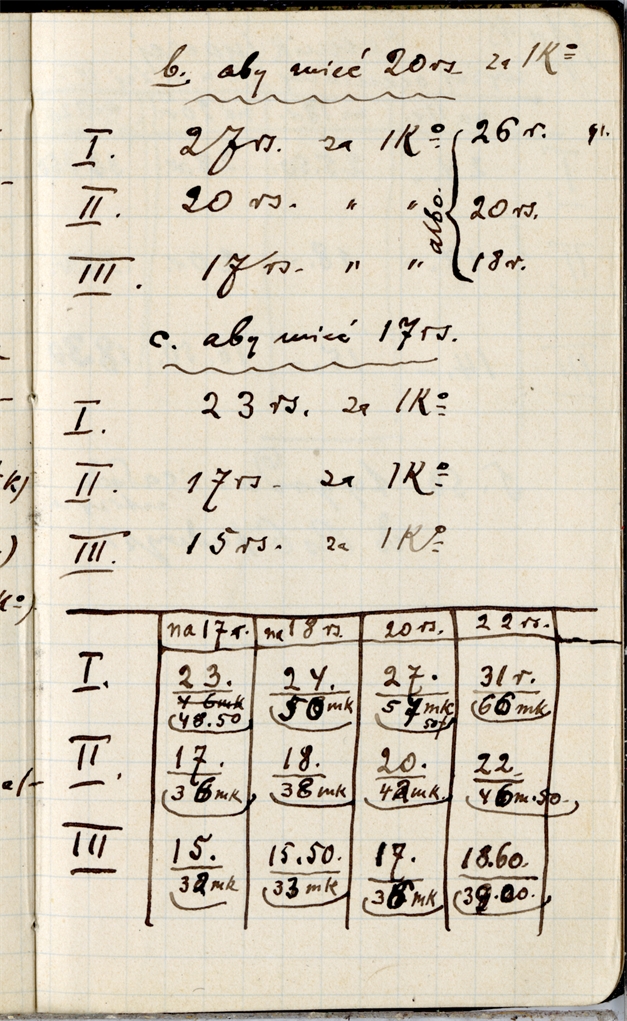 b. aby mieć 20 rs za 1K°
I. 27 rs. za 1K° albo. 26 r.
II. 20 rs. " " 20 rs.
III. 17 rs. " " 18 r.
c. aby mieć 17 rs.
I. 23 rs. za 1K°
II. 17 rs. za 1K°
III. 15 rs. za 1K°
na 17 r. na 18 rs. 20 rs. 22 rs.
I. 23. 24. 27. 31 r.
46mk 50 mk 57 mk 66 mk
48.50 50f
II. 17. 18. 20. 22
36 mk 38 mk 42 mk. 46 m. 50.
III 15. 15.50. 17. 18.60.
32 mk 33 mk 36 mk 39.00.